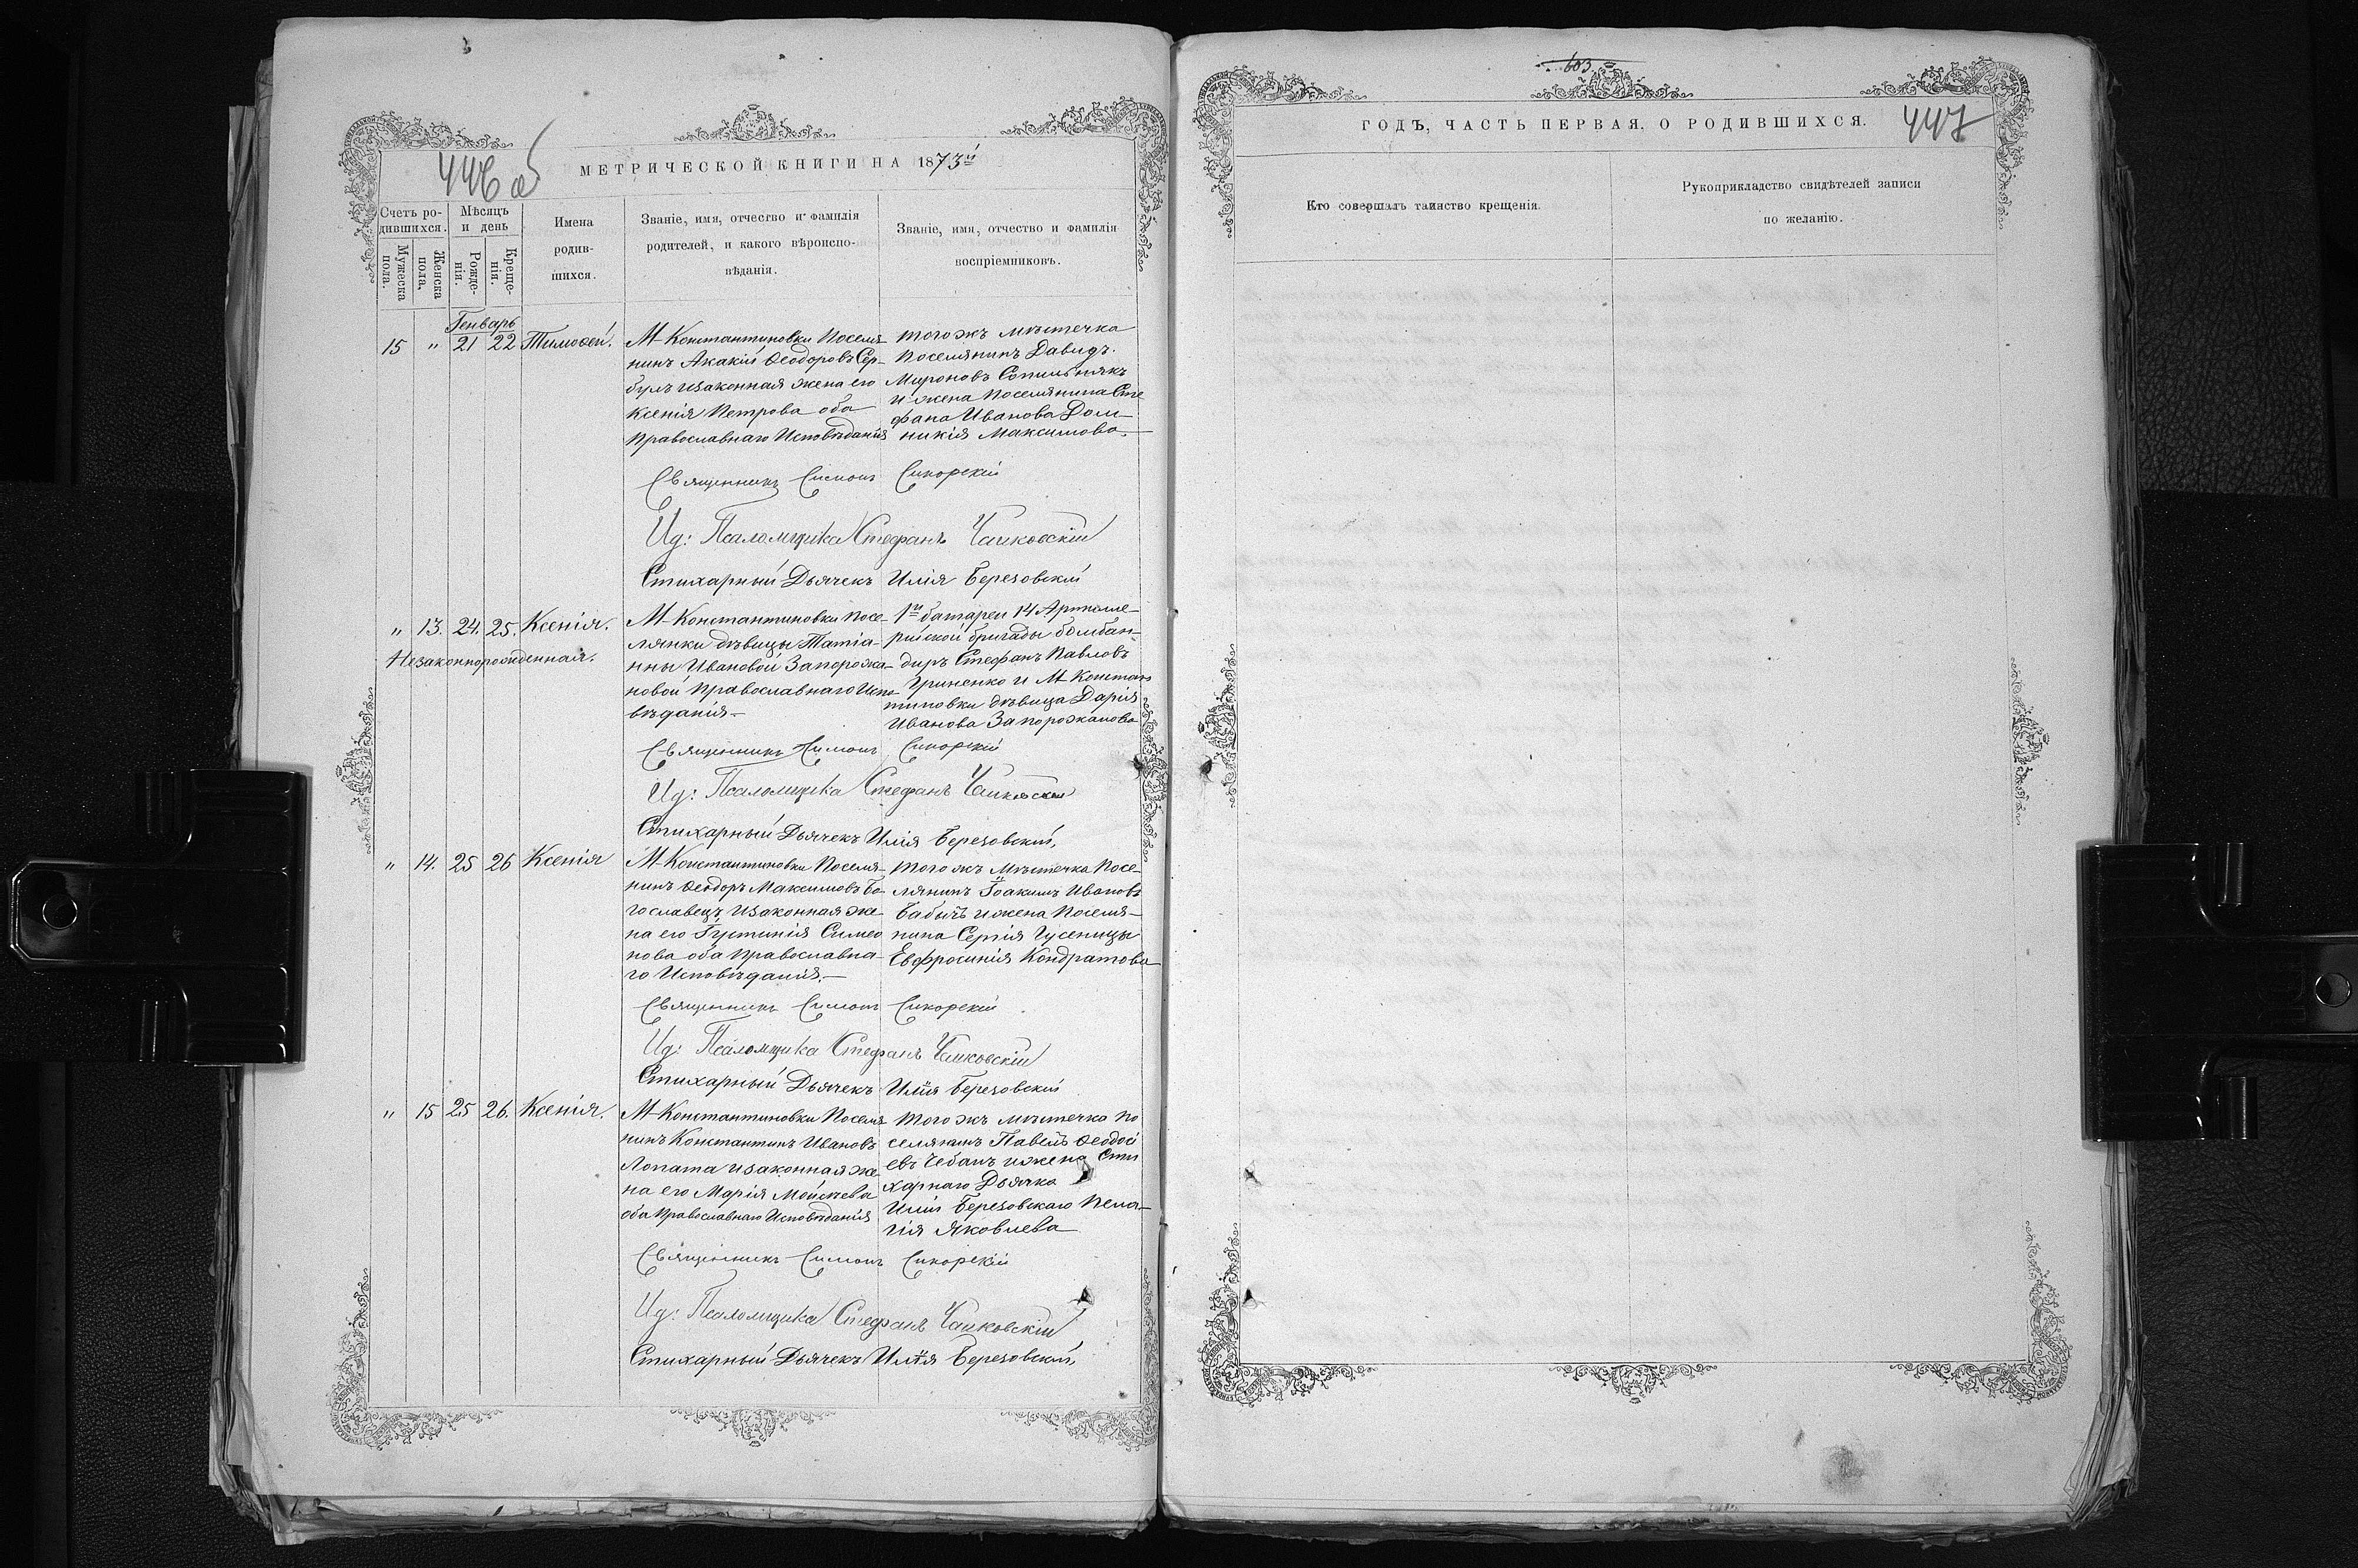 446 об
МЕТРИЧЕСКОЙ КНИГИ НА 1873й
Счетъ ро-
дившихся.
Мужеска
пола.
Женска
пола,
Мѣсяцъ
и день
Рожде-
нія.
Креще-
нія.
Имена
родив-
шихся.
Званіе, имя, отчество и фамилія
родителей, и какого вѣроиспо-
вѣданія.
Званіе, имя, отчество и фамилія
воспріемниковъ.
Генварь
15 " 21 22 Тимоѳей.
М Константиновки Поселя
нинъ Акакій Ѳеодоровъ Сер-
булъ изаконная жена его
Ксенія Петрова оба
Православнаго Исповѣданія
тогожъ мѣстечка
Поселянинъ Давидъ
Мироновъ Сопильнякъ
и жена Поселянина Сте
фана Иванова Дом-
никія Максимова.
Священникъ Симонъ Сикорскій
Ид: Псаломщика Стефанъ Чайковскій
Стихарный Дьячекъ Илія Березовскій
" 13. 24. 25. Ксенія.
Незаконнорожденная.
М Константиновки посе-
лянки дѣвицы Татіа-
нны Ивановой Запорожа-
новой Православнаго Испо
вѣданія-
1й батареи 14 Артилле-
рийской бригады бомбан-
диръ Стефанъ Павловъ
Гриненко и М Констан
тиновки дѣвица Дарія
Иванова Запорожанова
Священникъ Симонъ Сикорскій
Ид: Псаломщика Стефанъ Чайковскій
Стихарный Дьячекъ Илія Березовскій,
" 14. 25 26 Ксенія
М Константиновки Поселя-
нинъ Ѳеодоръ Максимовъ Бо-
гославецъ изаконная же-
на его Іустинія Симео
нова оба Православна-
го Исповѣданія.-
тогожъ Мѣстечка Посе-
лянинъ Іоакимъ Ивановъ
Бабычъ ижена Поселя-
нина Сергія Гусеницы
Евфросинія Кондратова
Священникъ Симонъ Сикорскій
Ид: Псаломщика Стефанъ Чайковскій
Стихарный Дьячекъ Илія Березовскій
" 15 25 26. Ксенія.
М Константиновки Поселя
нинъ Константинъ Ивановъ
Лопата изаконная же
на его Марія Мойсѣева
оба Православнаго Исповѣданія
тогожъ мѣстечка по
селянинъ Павелъ Ѳеодосі
евъ Чебанъ ижена Сти
харнаго Дьячка
Иліи Березовскаго Пела-
гія Яковлева
Священникъ Симонъ Сикорскій
Ид: Псаломщика Стефанъ Чайковскій
Стихарный Дьячекъ Илія Березовскій,
603
ГОДЪ, ЧАСТЬ ПЕРВАЯ, О РОДИВШИХСЯ.
447
Кто совершалъ таинство крещенія.
Рукоприкладство свидѣтелей записи
по желанію.